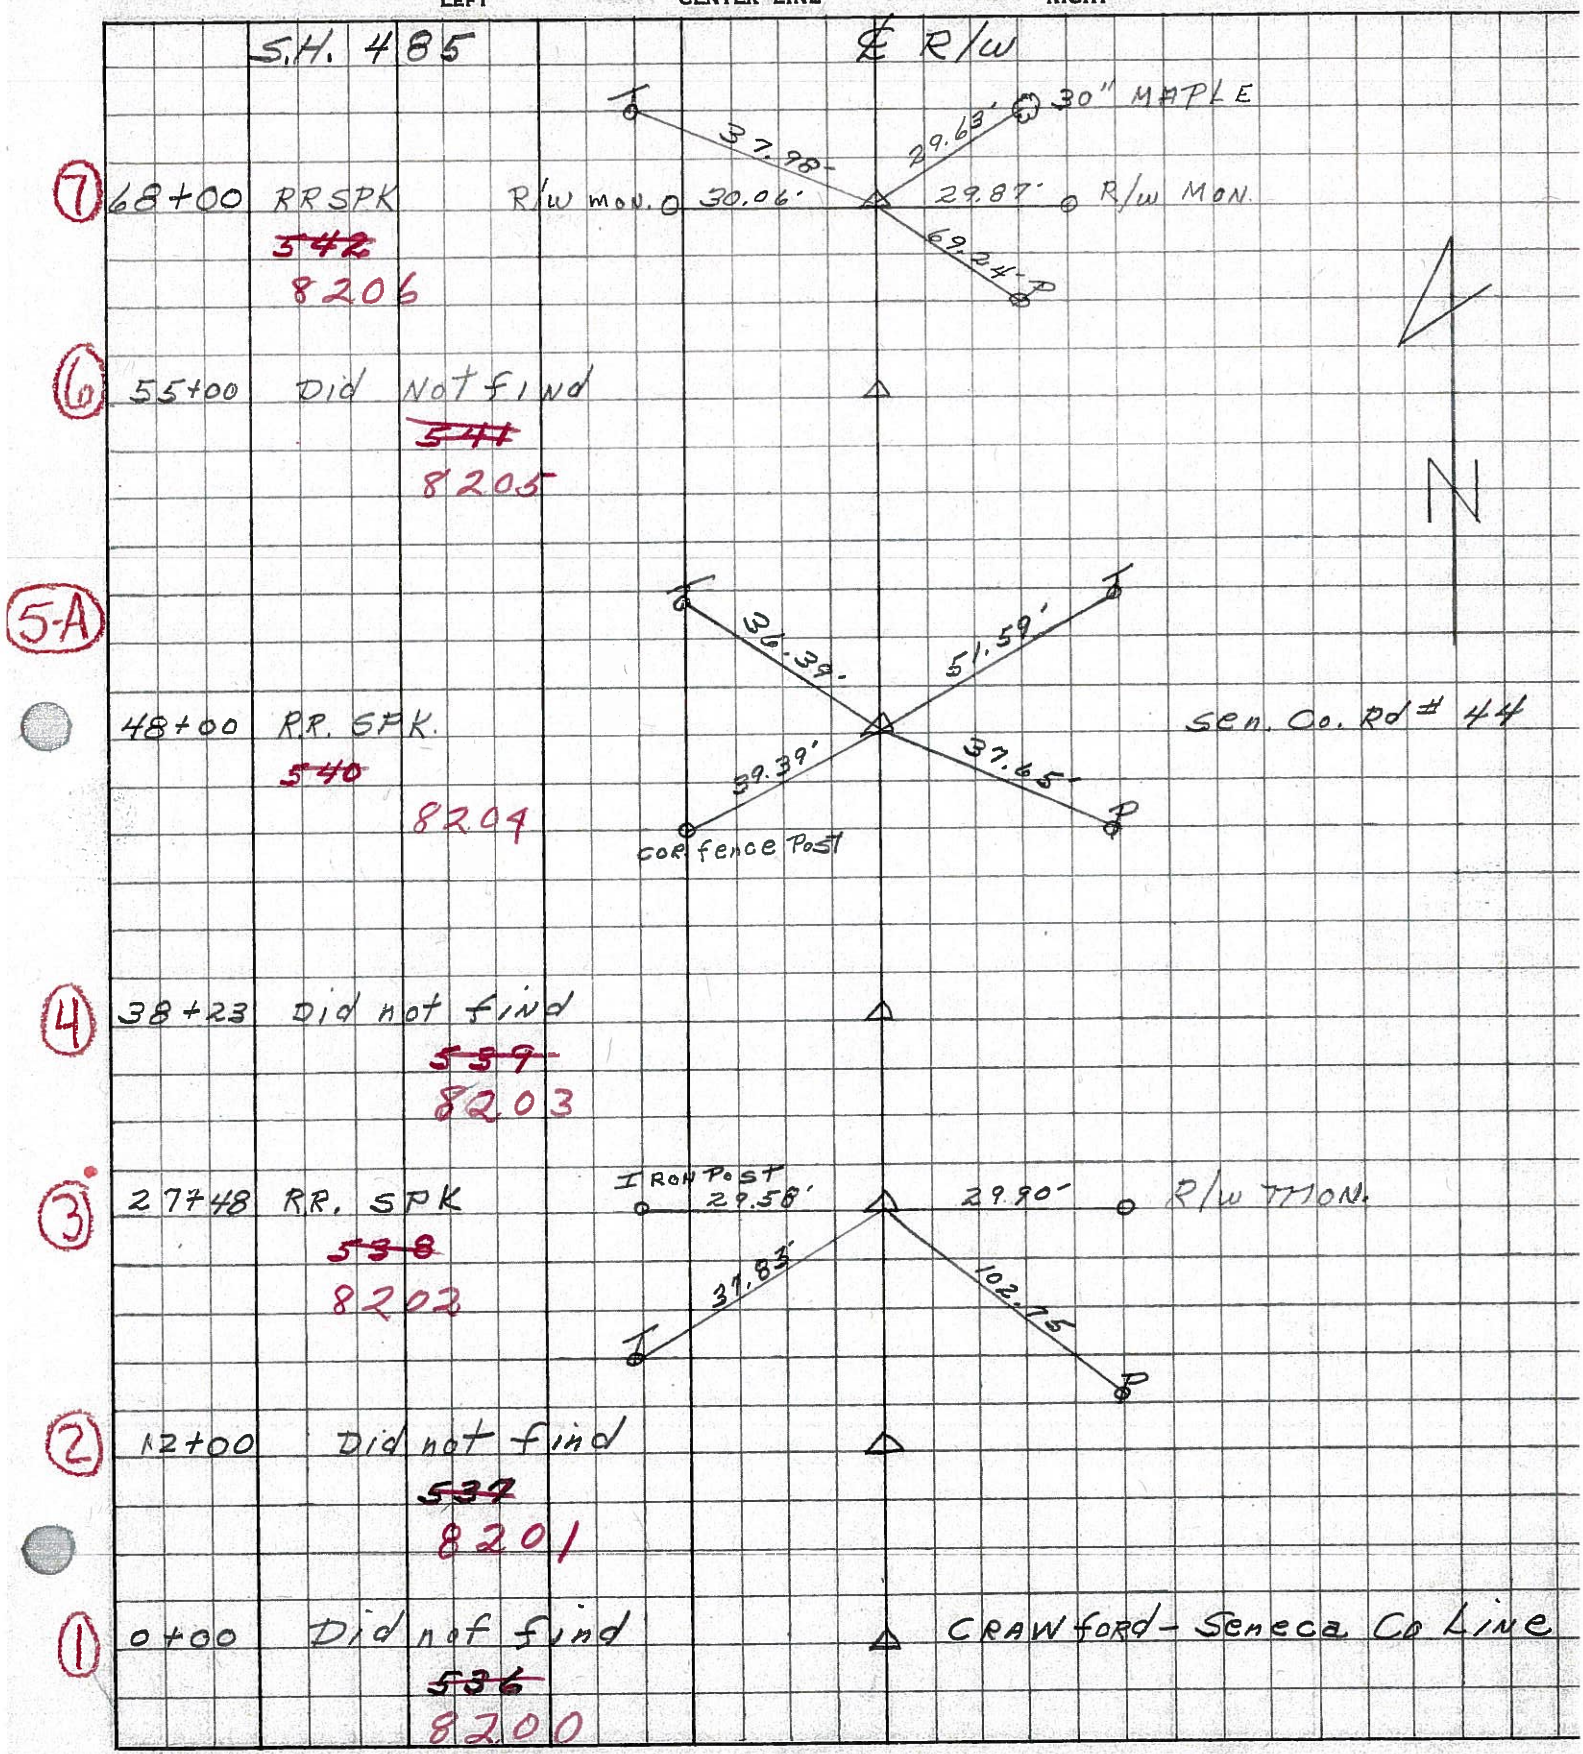 LEFT CENTER LINE RIGHT
S.H. 485 ℄ R/W
T 30" MAPLE
37.98' 29.63'
7 68+00 RR SPK R/W MON. 30.06' 29.87' R/W MON.
542 69.24'
8206 P
6 55+00 Did Not find
541
8205
N
5-A T T
36.39' 51.59'
48+00 R.R. SPK. Sen. Co. Rd # 44
540 39.39' 37.65'
8204 P
COR. fence Post
4 38+23 Did not find
539
8203
IRON POST
3 27+48 RR. SPK 29.58' 29.90' R/W MON.
538
8202 37.83' 102.75
T P
2 12+00 Did not find
537
8201
1 0+00 Did not find CRAWford - Seneca Co Line
536
8200